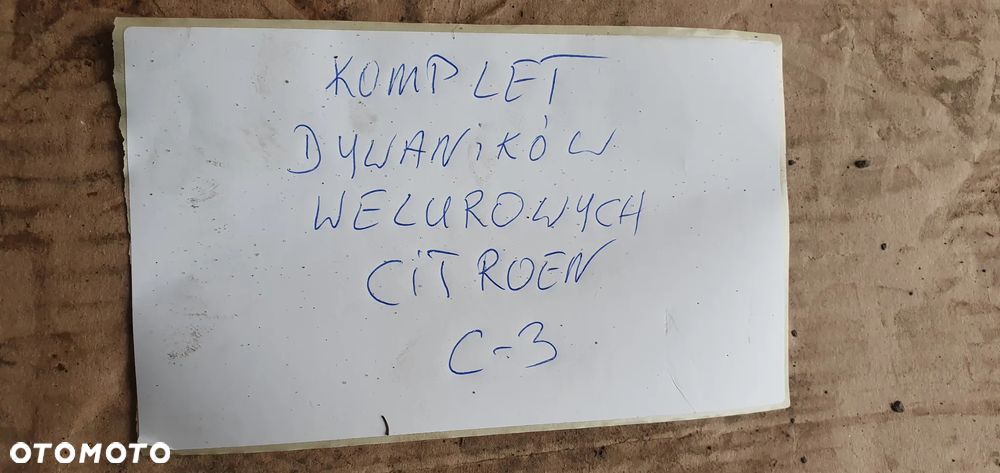 KOMPLET
DYWANiKÓW
WELUROWYCH
CiTROEN
C-3
OTOMOTO